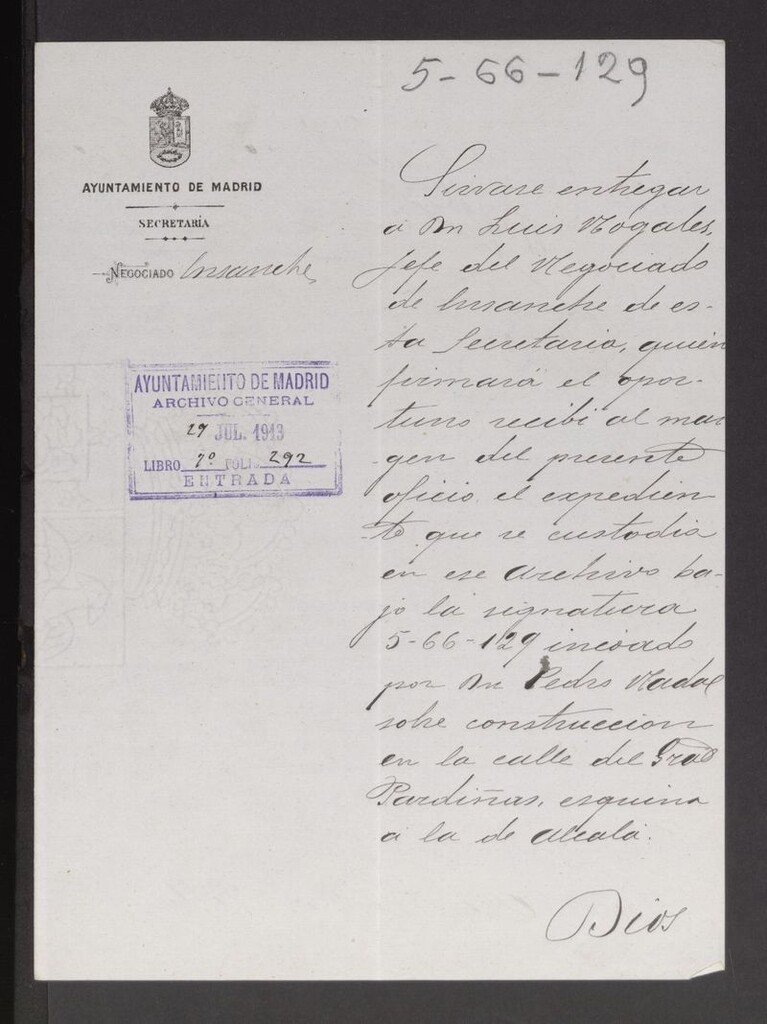 5-66-129
AYUNTAMIENTO DE MADRID
SECRETARÍA
NEGOCIADO Ensanche
AYUNTAMIENTO DE MADRID
ARCHIVO GENERAL
29 JUL. 1913
LIBRO 7º FOLI 292
ENTRADA
Sirvase entregar
a Dn Luis Nogales,
Jefe del Negociado
de Ensanche de es-
ta Secretaria, quien
firmará el opor-
tuno recibi al mar
-gen del presente
oficio, el expedien
-te que se custodia
en ese Archivo ba-
jo la signatura
5-66-129 incoado
por Dn Pedro Nadal
sobre construccion
en la calle del Gral
Pardiñas, esquina
a la de Alcalá.
Dios